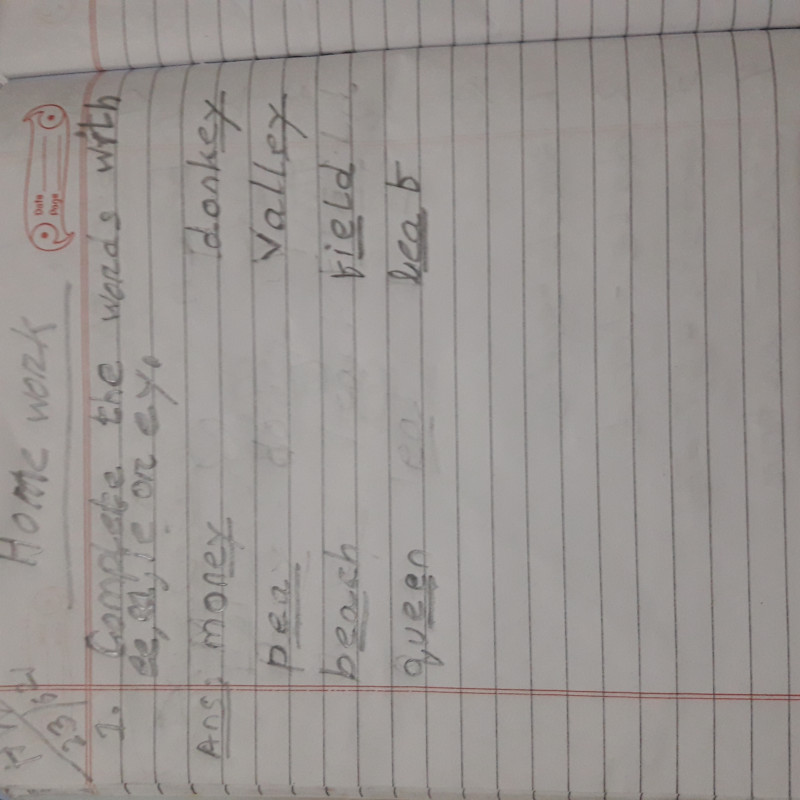 Home work
Date
Page
1. Complete the words with
ee, ea, ie or ey.
Ans: money donkey
pea valley
beach field
queen leaf